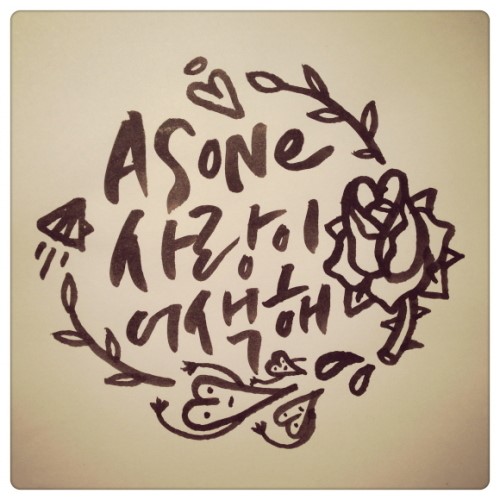 ASONE
사랑이
어색해